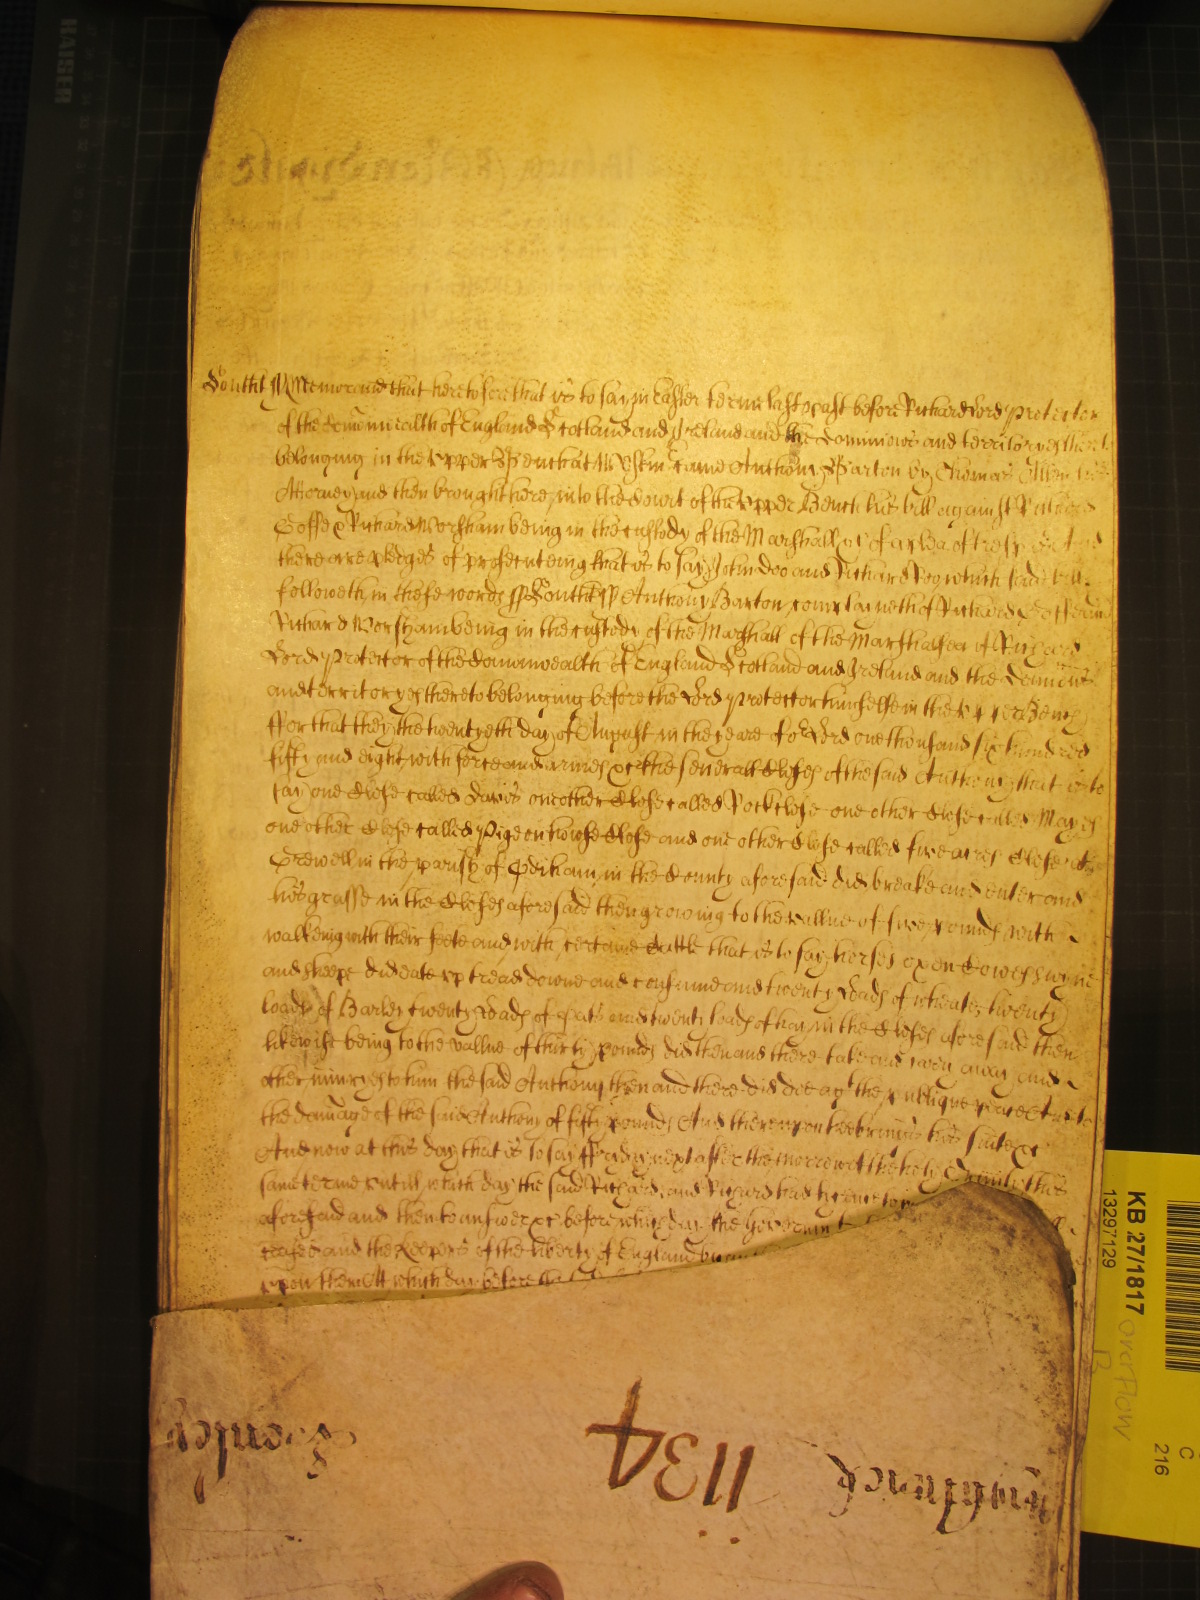 Southt ss Memorand that heretofore that is to say in Easter terme last past before Richard Lord Protector
of the Comonwealth of England Scotland and Ireland and the Dominions and territoryes thereto
belonging in the Upper Bench at Westm came Anthony Barton by Thomas Allen his
Attorney and then brought here into the Court of the Upper Bench his bill against Richard
Goffe & Richard Worsham being in the custody of the Marshall &c of a plea of tresp and
there are pledges of prosecuteing that is to say John Doo and Richard Roo which said bill
followeth in these words ss Southt ss Anthony Barton complayneth of Richard Goffe and
Richard Worsham being in the custody of the Marshall of the Marshalsea of Richard
Lord Protector of the Comonwealth of England Scotland and Ireland and the Dominions
and territoryes thereto belonging before the Lord Protector himselfe in the Upper Bench
ffor that they the twentyeth day of August in the yeare of or Lord one thousand six hundred
fifty and eight with force and armes &c the severall Closes of the said Anthony that is to
say one Close called Davis one other Close called Rockclose one other Close called Mayes
one other Close called Pigeonhouse Close and one other Close called five acres Close att
Grewell in the parish of Odiham in the County aforesaid did breake and enter and
his grasse in the Closes aforesaid then growing to the vallue of five pounds with
walkeing with their feete and with certaine Cattle that is to say horses oxen Cowes swyne
and sheepe did eate up tread downe and consume and twenty Loads of wheate twenty
loads of Barley twenty Loads of Oats and twenty loads of hay in the Closes aforesaid then
likewise being to the vallue of thirty pounds did then and there take and carry away and
other injuryes to him the said Anthony then and there did doe agt the publique peace And to
the damage of the said Anthony of fifty pounds And thereupon hee brings his suite &c
And now at this day that is to say ffryday next after the morrow of the holy Trinity this
same terme untill which day the said Richard and Richard had lycence to
aforesaid and then to answer &c before which day the Governm
ceased and the Keepers of the liberty of England by
upon them Att which day before
1134
Southwark
KB 27/1817
13297129
overflow
B
C
216
KAISER